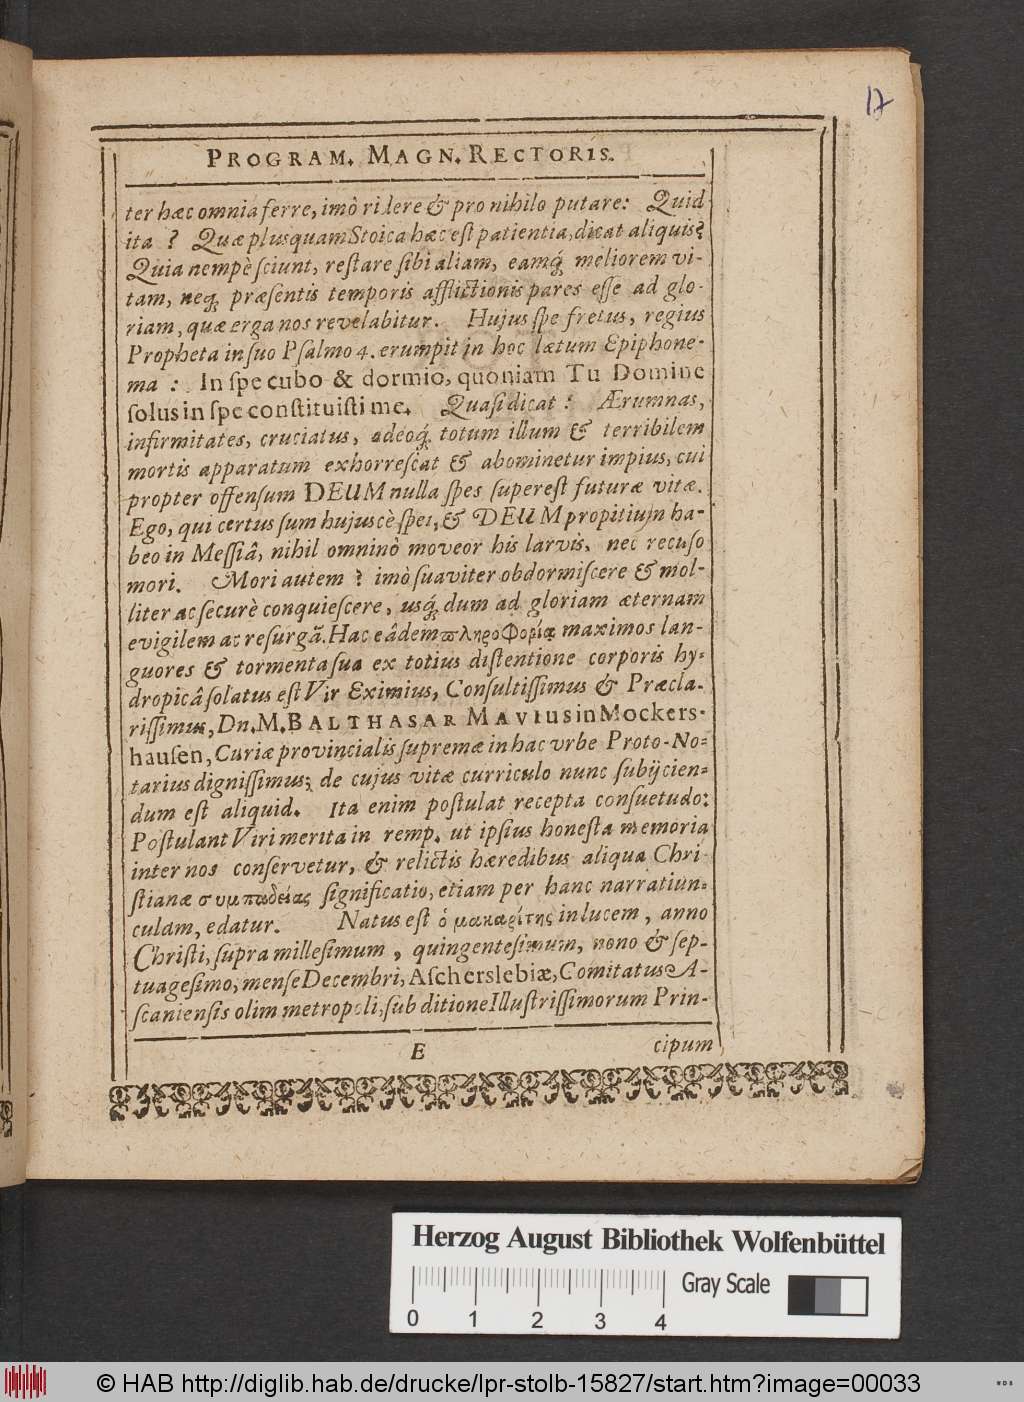 17
PROGRAM. MAGN. RECTORIS.
ter hæc omnia ferre, imò ridere & pro nihilo putare: Quid
ita ? Quæ plusquam Stoica hæc est patientia, dicat aliquis?
Quia nempè sciunt, restare sibi aliam, eamq́; meliorem vi-
tam, neq; præsentis temporis afflictionis pares esse ad glo-
riam, quæ erga nos revelabitur. Hujus spe fretus, regius
Propheta in suo Psalmo 4. erumpit in hoc lætum Epiphone-
ma : In spe cubo & dormio, quoniam Tu Domine
solus in spe constituisti me. Quasi dicat : Ærumnas,
infirmitates, cruciatus, adeoq́; totum illum & terribilem
mortis apparatum exhorrescat & abominetur impius, cui
propter offensum DEUM nulla spes superest futuræ vitæ.
Ego, qui certus sum hujuscè spei, & DEUM propitium ha-
beo in Messiâ, nihil omninò moveor his larvis, nec recuso
mori. Mori autem ? imò suaviter obdormiscere & mol-
liter ac securè conquiescere, usq́; dum ad gloriam æternam
evigilem ac resurgã. Hac eâdem πληροφορία maximos lan-
guores & tormenta sua ex totius distentione corporis hy-
dropicâ solatus est Vir Eximius, Consultissimus & Præcla-
rissimus, Dn. M. BALTHASAR MAVIus in Mockers-
hausen, Curiæ provincialis supremæ in hac vrbe Proto-No-
tarius dignissimus; de cujus vitæ curriculo nunc subijcien-
dum est aliquid. Ita enim postulat recepta consuetudo:
Postulant Viri merita in remp. ut ipsius honesta memoria
inter nos conservetur, & relictis hæredibus aliqua Chri-
stianæ συμπαθείας significatio, etiam per hanc narratiun-
culam, edatur. Natus est ὁ μακαρίτης in lucem, anno
Christi, supra millesimum, quingentesimum, nono & sep-
tuagesimo, mense Decembri, Aschers­lebiæ, Comitatus A-
scaniensis olim metropoli, sub ditione Illustrissimorum Prin-
E cipum
Herzog August Bibliothek Wolfenbüttel
0 1 2 3 4 Gray Scale
© HAB http://diglib.hab.de/drucke/lpr-stolb-15827/start.htm?image=00033